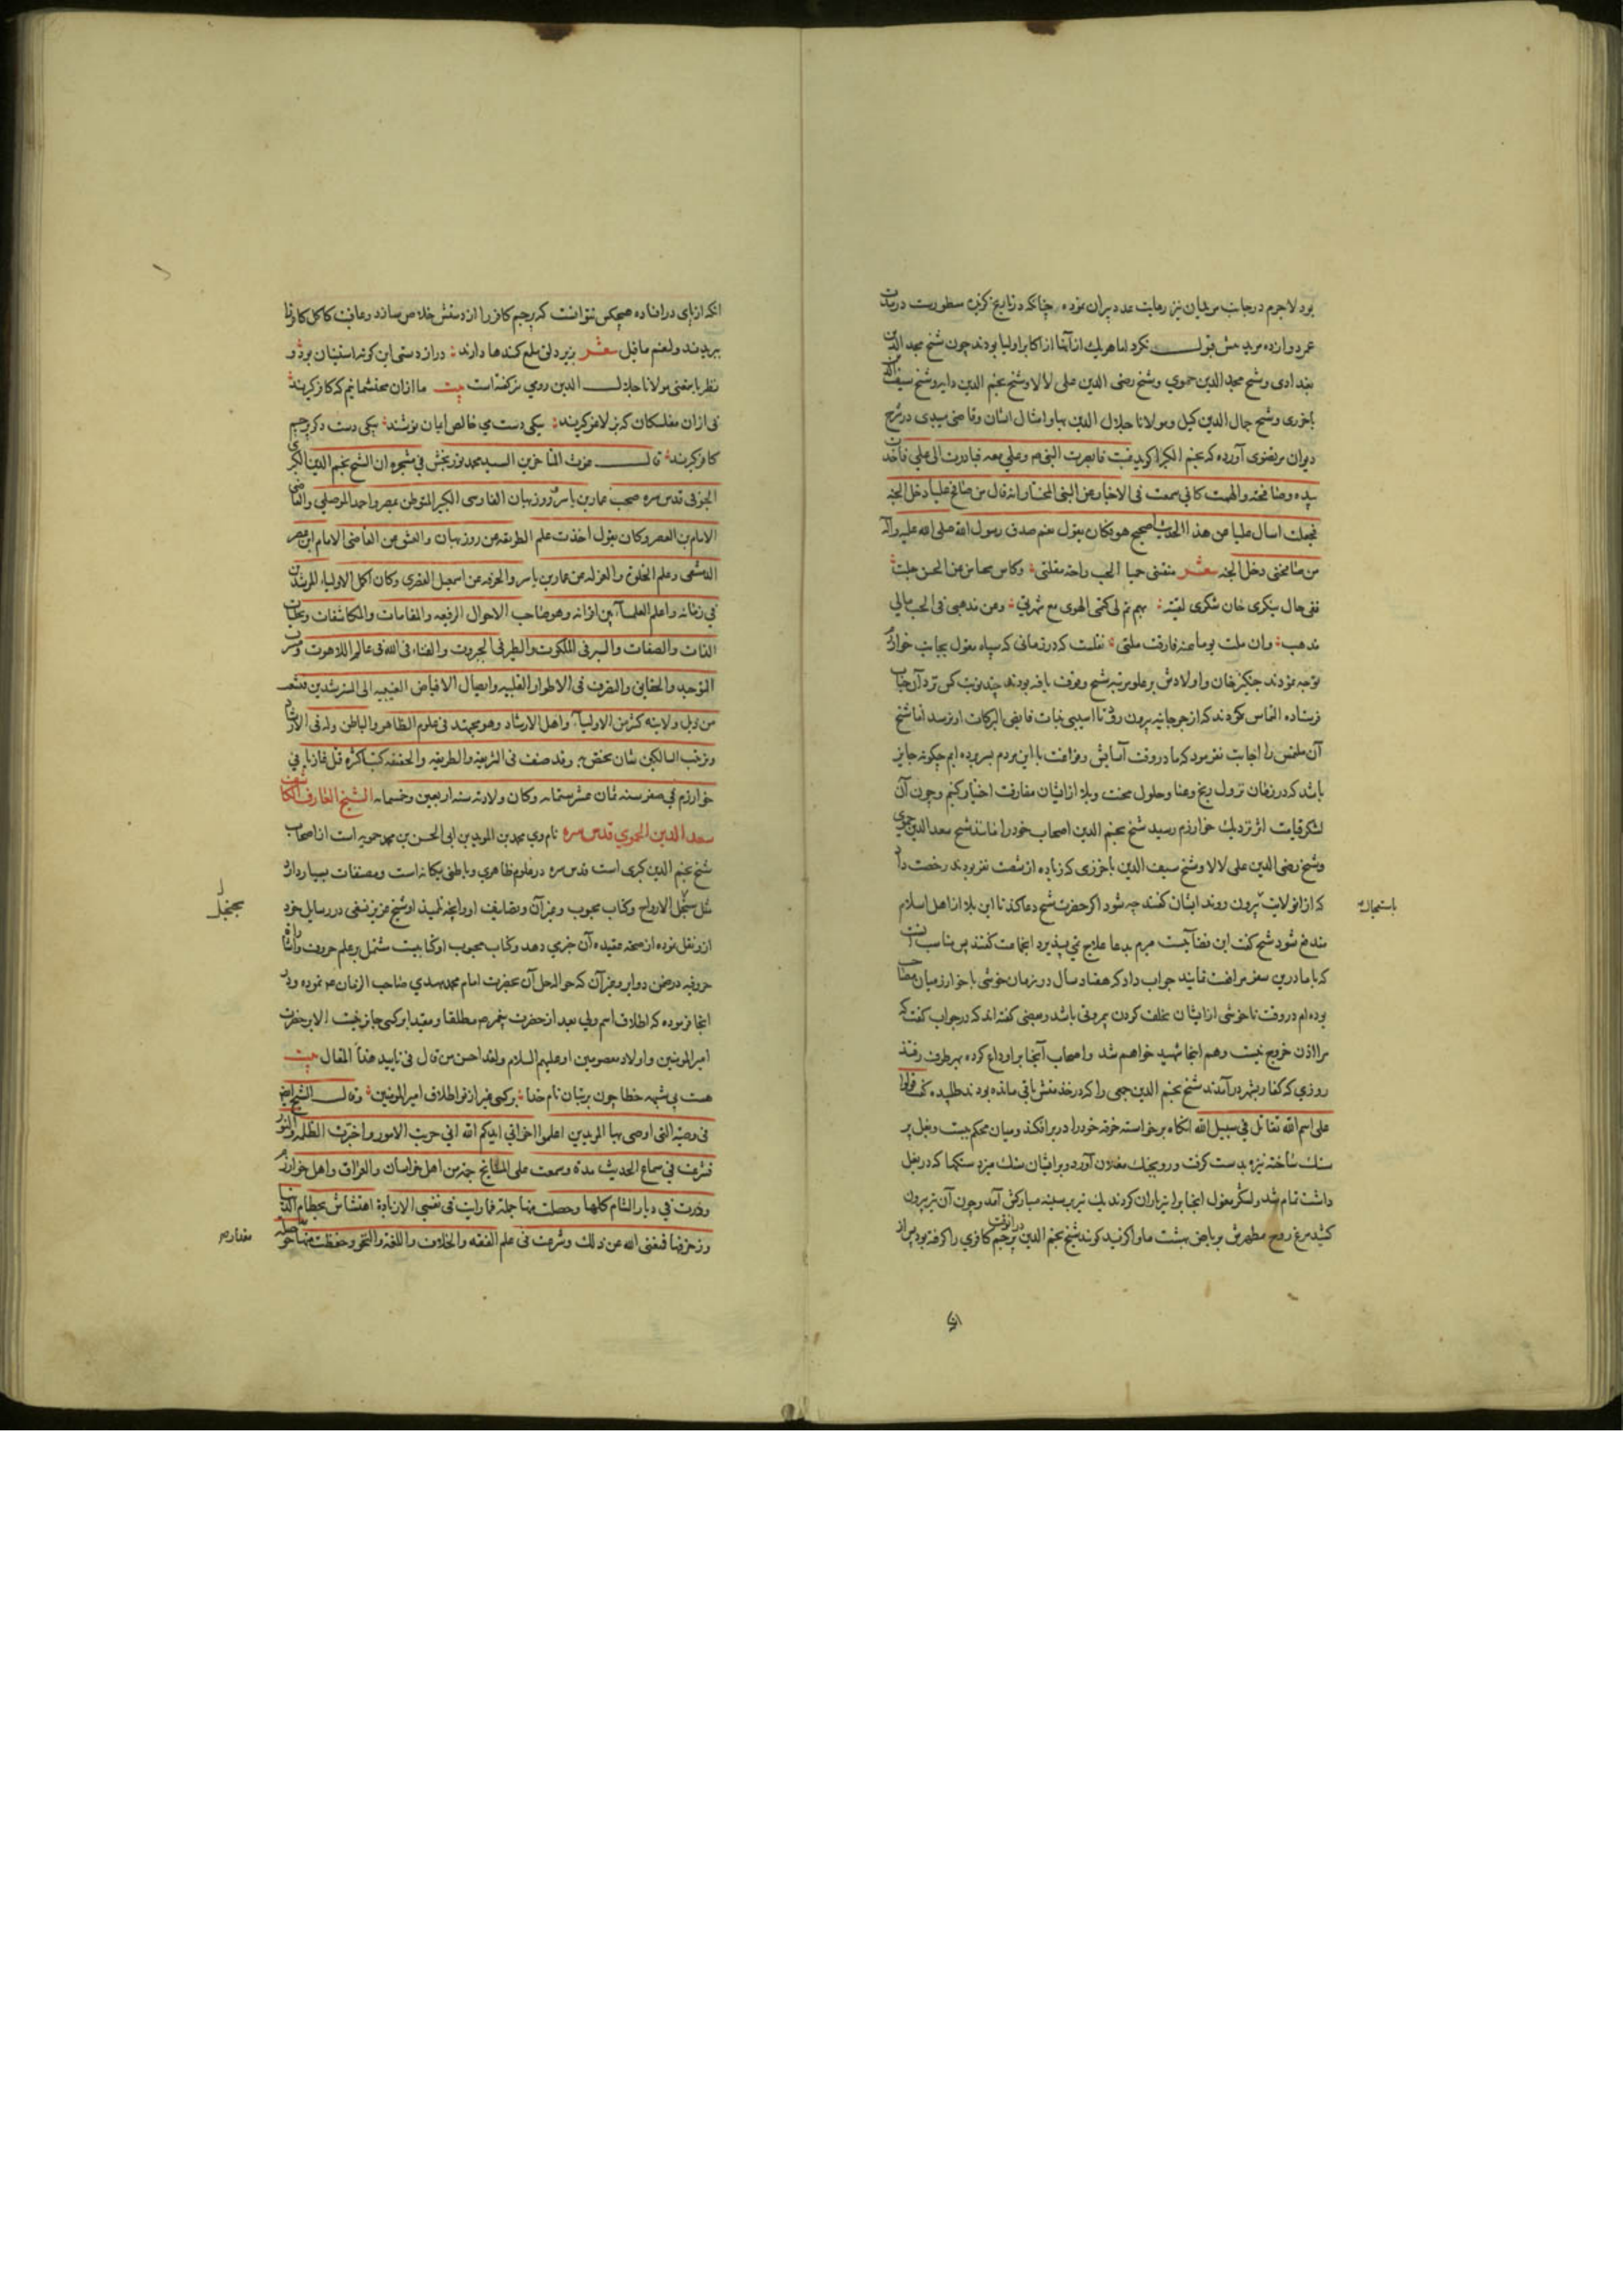 بود لاجرم در جانب مریدان نیز رعایت عدد پیران نموده چنانکه در تاریخ گزیده مسطورست در مدت
عمر دوازده مرید بیش قبول نکرد اما هر یک از آنها از اکابر اولیا بودند چون شیخ مجد الدین
بغدادی و شیخ سعد الدین حموی و شیخ رضی الدین علی لالا و شیخ نجم الدین دایه و شیخ سیف الدین
باخرزی و شیخ جمال الدین کیل و مولانا جلال الدین بها و امثال ایشان و قاضی میبدی در شرح
دیوان مرتضوی آورده که نجم الکبرا کوید غبت فابصرت النبی ص و علی معه فبادرت الی علی فاخذت
بیده و صافحته و الهمت کانی سمعت فی الاخبار عن النبی المختار انه قال من صافح علیا دخل الجنه
فجعلت اسال علیا عن هذا الحدیث اصحیح هو فکان یقول نعم صدق رسول الله صلی الله علیه و آله
من صافحنی دخل الجنه شعر سقتنی حمیا الحب راحة مقلتی وکاس محیا من عن الحسن جلت
ففی حان سکری حان شکری لفتیة بهم تم لی کتم الهوی مع شهرتی وعن مذهبی فی الحب مالی
مذهب وان ملت یوما عنه فارقت ملتی نقلست که در زمانی که سپاه مغول بجانب خوارزم
توجه نمودند چنکیز خان و اولادش بر علو مرتبه شیخ وقوف یافته بودند چند نوبت کس نزد آن جناب
فرستاده التماس نمودند که از جرجانیه بیرون رود تا آسیبی بذات فایض البرکات او نرسد اما شیخ
آن ملتمس را اجابت نفرمود که ما در وقت آسایش و فراغت با این مردم بسر برده ایم چکونه جایز
باشد که در زمان نزول رنج و عنا و حلول محنت و بلا از ایشان مفارقت اختیار کنیم و چون آن
لشکر قیامت اثر نزدیک خوارزم رسید شیخ نجم الدین اصحاب خود را مانند شیخ سعد الدین حموی
و شیخ رضی الدین علی لالا و شیخ سیف الدین باخرزی که زیاده از شصت نفر بودند رخصت داد
که از آن ولایت بیرون روند ایشان کفتند چه شود اگر حضرت شیخ دعا کند تا این بلا از اهل اسلام
مندفع شود شیخ کفت این قضائیست مبرم بدعا علاج نمی پذیرد آنجماعت کفتند پس مناسب آنست
که با ما درین سفر مرافقت نمایند جواب داد که هفتاد سال در زمان خوشی با خوارزمیان مصاحب
بوده ام در وقت ناخوشی از ایشان تخلف کردن بی مروتی باشد و بعضی کفته اند که در جواب کفت که
مرا اذن خروج نیست و هم اینجا شهید خواهم شد و اصحاب آنجا براو داع کرده بهر طرف رفتند
روزی که کفار بشهر در آمدند شیخ نجم الدین جمعی را که در خدمتش باقی مانده بودند طلبیده گفت قوموا
علی اسم الله نقاتل فی سبیل الله آنکاه برخواسته خرقه خود را در بر افکند و میان محکم ببست و بغل پر
سنک ساخته نیزه بدست کرفت و روی بجنک مغولان آورد و بر ایشان سنک میزد سنکها که در بغل
داشت تمام شد و لشکر مغول آنجا بر او تیر باران کردند یک تیر بر سینه مبارکش آمد و چون آن تیر بیرون
کشید مرغ روح مطهرش بریاض بهشت ماوا کزید کویند شیخ نجم الدین در آنوقت پرچم کافری را کرفته بود پس از
باستحالت
آنکه از پای در افتاده هیچکس نتوانست که پرچم کافر را از دستش خلاص سازد و عاقبت کاکل کافر را
ببریدند و لنعم ما قیل شعر بزیر دلق ملمع کمندها دارند دراز دستی این کوته آستینان بین و
نظر باینمعنی مولانا جلال الدین رومی نیز کفته است بیت ما از آن محتشمانیم که ساغر کیرند
نی از آن مفلسکان که بز لاغر کیرند بیکی دست می خالص ایمان نوشند بیکی دست دکر پرچم
کافر کیرند قال غوث المتاخرین السید محمد نوربخش فی شجره ان الشیخ نجم الدین الکبری
الخیوقی قدس سره صحب عمار بن یاسر و روزبهان الفارسی الکبیر المتوطن بمصر و احمد الموصلی و القاضی
الامام بن العصر و کان یقول اخذت علم الطریقه عن روزبهان و العشق عن القاضی الامام ابن عصر
الدمشقی و علم الخلوة و العزله عن عمار بن یاسر و الخرقه عن اسمعیل القصری و کان اکمل الاولیاء المرشدین
فی زمانه و اعلم العلماء بین اقرانه و هو صاحب الاحوال الرفیعه و المقامات و المکاشفات و تجلیات
الذات و الصفات و السیر فی الملکوت و الطیر فی الجبروت و الفناء فی الله فی عالم اللاهوت و مشرب
التوحید و الحقایق و التصرف فی الاطوار القلبیه و ایصال الافیاض الغیبیه الی المسترشدین
من ذیل ولایته کثیر من الاولیاء و اهل الارشاد و هو مجتهد فی علوم الظاهر و الباطن و له فی الارشاد
و تربیت السالکین شان مختص به و قد صنف فی الشریعه و الطریقه و الحقیقه کتبا کثیره قتل غازیا فی
خوارزم فی صفر سنه ثمان عشر ستمایه و کان ولادته سنه اربعین و خمسمایه الشیخ العارف الکاشف
سعد الدین الحموی قدس سره نام وی محمد بن المؤید بن ابی الحسن بن محمد حمویه است از اصحاب
شیخ نجم الدین کبری است قدس سره در علوم ظاهری و باطنی یکانه است و مصنفات بسیار دارد
مثل سجنجل الارواح و کتاب محبوب و غیر آن و تصانیف او و آنچه تلمیذ او شیخ عزیز نسفی در رسایل خود
ازو نقل نموده از صحه عقیده آن خبری دهد و کتاب محبوب او کتابیست مشتمل بر علم حروف و اشارات
حروفیه در ضمن دوایر و غیر آن که حواله حل آن بحضرت امام محمد مهدی صاحب الزمان ع نموده و در
آنجا فرموده که اطلاق اسم ولی بعد از حضرت پیغمبر ص مطلقا و مقیدا بر کسی جایز نیست الا بر حضرت
امیر المومنین و اولاد معصومین او علیهم السلام و لقد احسن من قال فی تایید هذا المقال بیت
هست بی شبهه خطا چون بر بتان نام خدا بر کسی غیر از تو اطلاق امیر المومنین و قال الشیخ ایضا
فی وصیه التی اوصی بها المریدین اعلموا اخوانی ایدکم الله انی جربت الامور و اخترت الظلمه و النور
فشرعت فی سماع الحدیث مدة و سمعت علی المشایخ جمة من اهل خراسان و العراق و اهل خوارزم
و درت فی دیار الشام کلها و حصلت منها جملة فما رایت فی نفسی الا زیادة اهتشاش بحطام الدنیا
و زخرفها فمنعنی الله عن ذلک و شرعت فی علم الفقه و الخلاف و اللغة و النحو و حفظت منها
سجنجل
مقداره